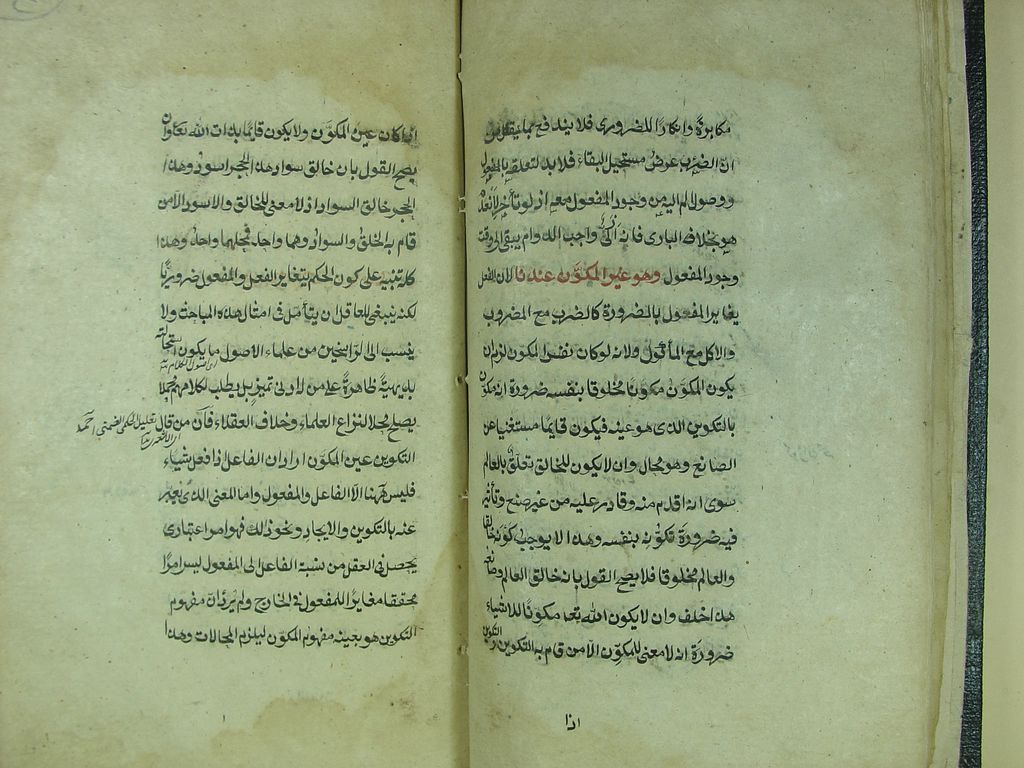 مكابرة وانكارا للضرورى فلا يندفع بما يقال من
ان الضرب عرض مستحيل البقاء فلا بد لتعلقه بالمفعول
ووصول الالم اليه من وجود المفعول معه اذ لو تأخر لانعدم
هو بخلاف البارى فانه ازلى واجب الدوام يبقى الى وقت
وجود المفعول وهو غير المكوَّن عندنا لان الفعل
يغاير المفعول بالضرورة كالضرب مع المضروب
والاكل مع المأكول ولانه لو كان نفس المكون لزم ان
يكون المكوّن مكونا مخلوقا بنفسه ضرورة انه مكون
بالتكوين الذى هو عينه فيكون قديما مستغنيا عن
الصانع وهو محال وان لا يكون للخالق تعلق بالعالم
سوى انه اقدم منه وقادر عليه من غير صنع وتأثير
فيه ضرورة تكونه بنفسه وهذا لا يوجب كونه خالقا
والعالم مخلوقا فلا يصح القول بانه خالق العالم وصانعه
هذا خلف وان لا يكون الله تعالى مكونا للاشياء
ضرورة انه لا معنى للمكوّن الا من قام به التكوين والتكوين
اذا
اذا كان عين المكوَّن ولا يكون قائما بذات الله تعالى وان
يصح القول بان خالق سواد هذا الحجر اسود وهذا
الحجر خالق السواد اذ لا معنى للخالق والاسود الا من
قام به الخلق والسواد وهما واحد فمحلهما واحد وهذا
كله تنبيه على كون الحكم بتغاير الفعل والمفعول ضروريا
لكنه ينبغى للعاقل ان يتأمل فى امثال هذه المباحث ولا
ينسب الى الراسخين من علماء الاصول ما يكون استحالته
بديهية ظاهرة على من له ادنى تميز بل يطلب لكلامهم محملا
يصلح محلا لنزاع العلماء وخلاف العقلاء فان من قال
التكوين عين المكوّن اراد ان الفاعل اذا فعل شياء
فليس ههنا الا الفاعل والمفعول واما المعنى الذى يعبر
عنه بالتكوين والايجاد ونحو ذلك فهو امر اعتبارى
يحصل فى العقل من نسبة الفاعل الى المفعول ليس امرا
محققا مغايرا للمفعول فى الخارج ولم يرد ان مفهوم
التكوين هو بعينه مفهوم المكوّن ليلزم المحالات وهذا